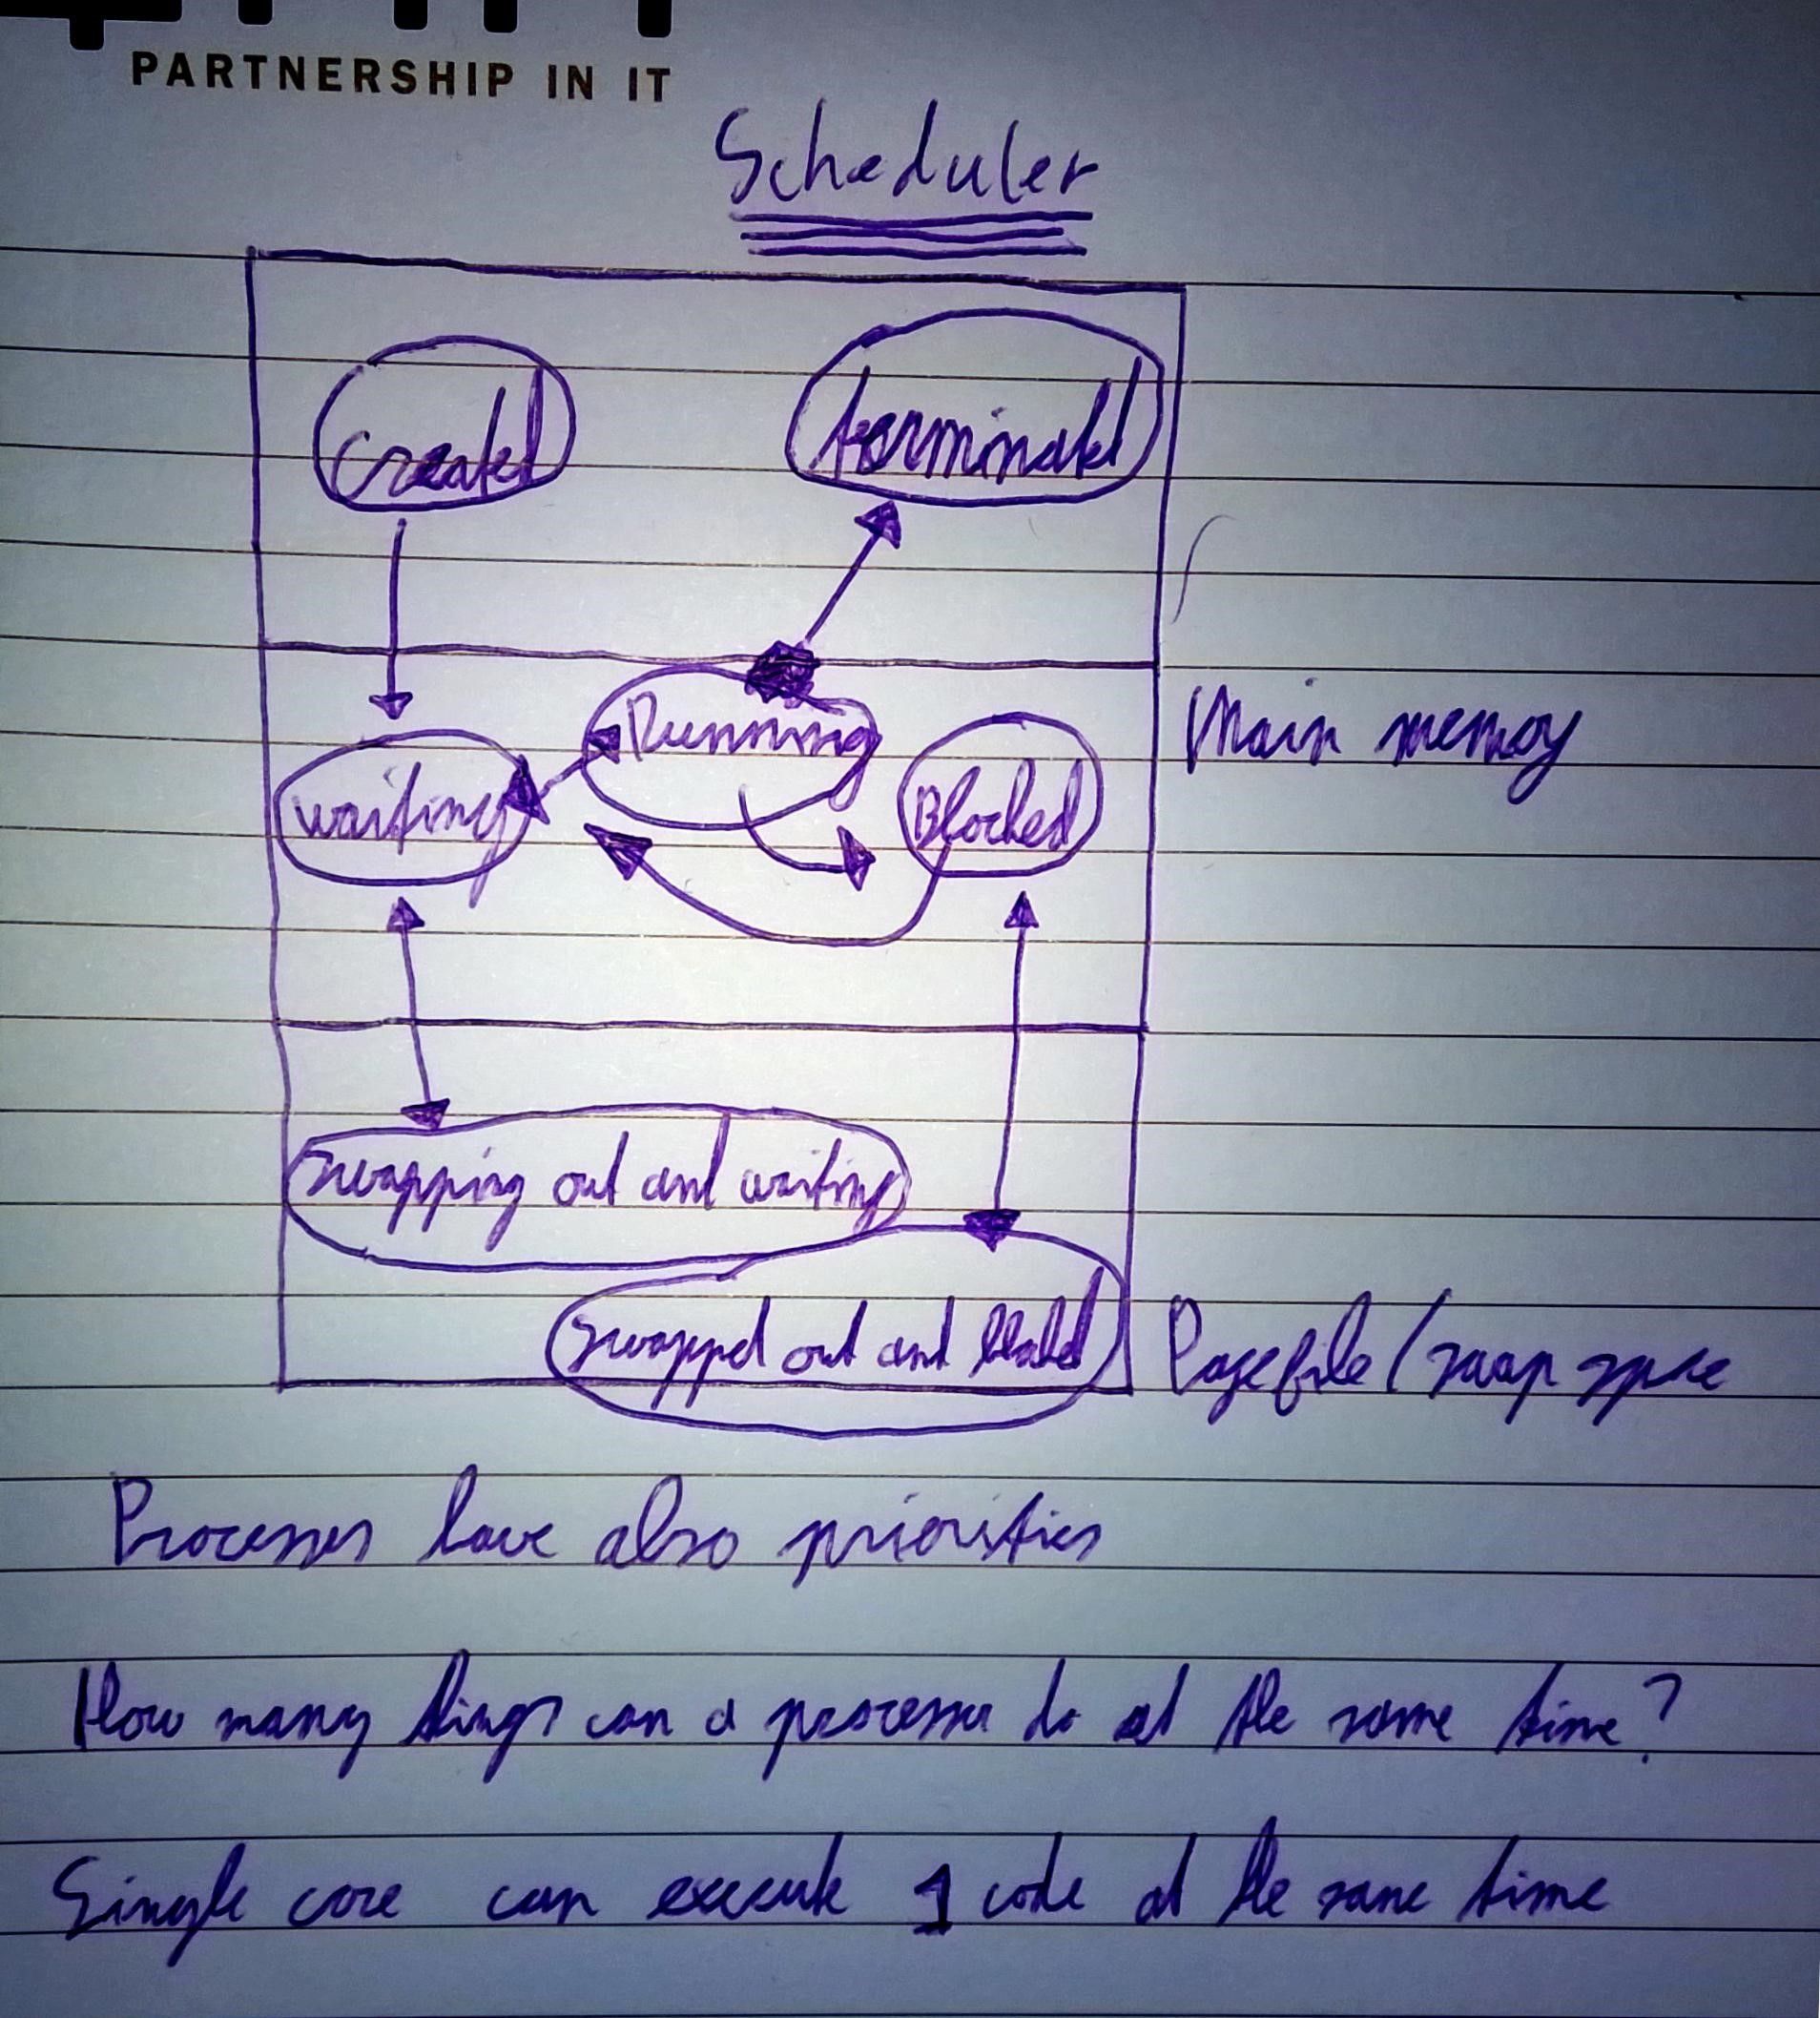 PARTNERSHIP IN IT
Scheduler
Created
terminated
Running
waiting
Blocked
Main memory
swapping out and waiting
swapped out and blocked
Pagefile / swap space
Processes have also priorities
How many things can a processor do at the same time?
Single core can execute 1 code at the same time